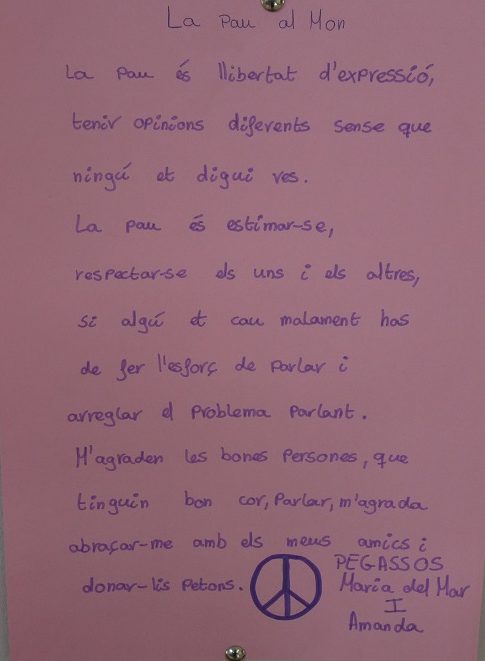 La Pau al Mon
La Pau és llibertat d'expressió,
tenir opinions diferents sense que
ningú et digui res.
La Pau és estimar-se,
respectar-se els uns i els altres,
si algú et cau malament has
de fer l'esforç de parlar i
arreglar el problema parlant.
M'agraden les bones persones, que
tinguin bon cor, parlar, m'agrada
abraçar-me amb els meus amics i
donar-lis petons.
PEGASSOS
Maria del Mar
I
Amanda